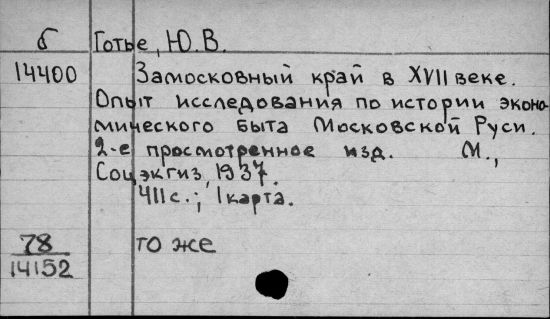 б Готье, Ю.В.
14400 Замосковный край в XVII веке.
Опыт исследования по истории эконо-
мического быта Московской Руси.
2-е просмотренное изд. М.,
Соцэкгиз, 1937.
411 с.; 1 карта.
78 то же
14152